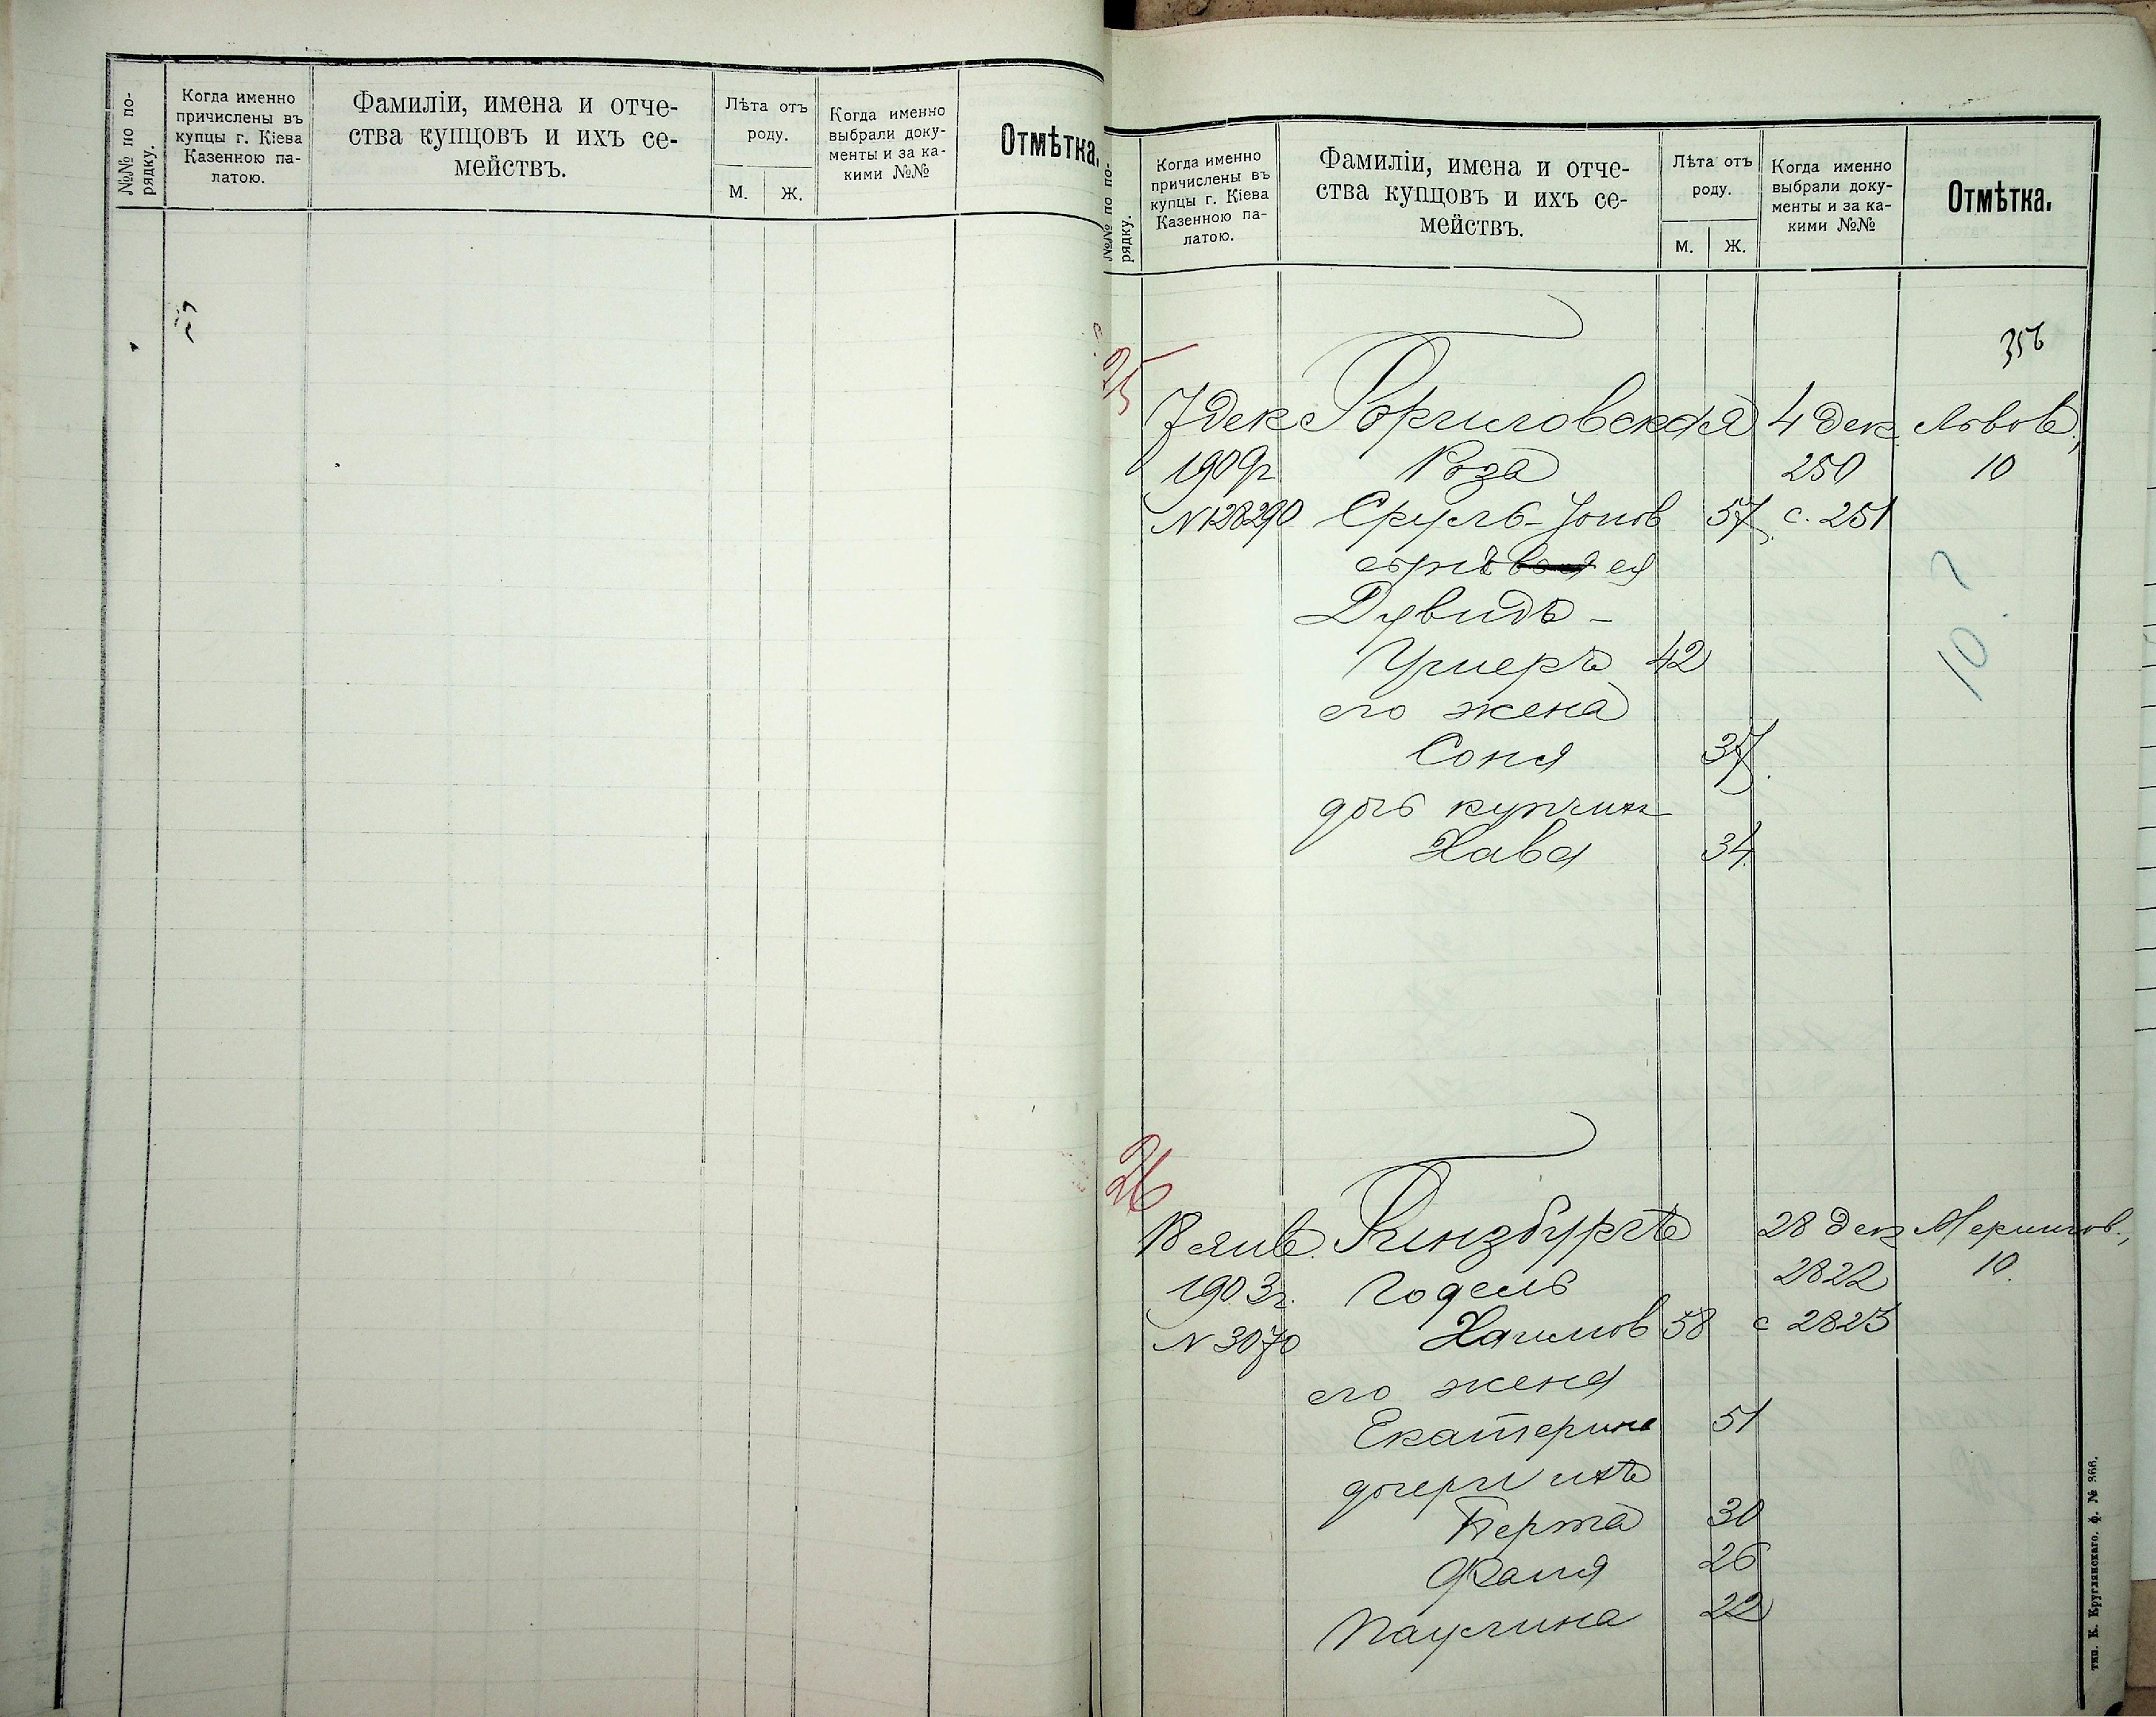 №№ по по-
рядку.
Когда именно
причислены въ
купцы г. Кіева
Казенною па-
латою.
Фамиліи, имена и отче-
ства купцовъ и ихъ се-
мействъ.
Лѣта отъ
роду.
М. Ж.
Когда именно
выбрали доку-
менты и за ка-
кими №№
Отмѣтка.
№№ по по-
рядку.
Когда именно
причислены въ
купцы г. Кіева
Казенною па-
латою.
Фамиліи, имена и отче-
ства купцовъ и ихъ се-
мействъ.
Лѣта отъ
роду.
М. Ж.
Когда именно
выбрали доку-
менты и за ка-
кими №№
Отмѣтка.
356
25
7 дек Гориловская 4 дек. Львов.,
1909г Роза 250 10
N 128290 Сруль- 57 с. 251
ея
Дувидъ-
Ушеръ 42
его жена
Соня 37
дочь купчих
Хава 34
10 ?
26
18 янв. Гинзбургъ 28 дек Мерингов.,
1903г. Годель 2822 10.
N 3070 Хаимов 58 с 2825
его жена
Екатерина 51
дочери ихъ
Берта 30
Фаня 26
Паулина 22
тип. К. Круглянскаго. ф. № 366.